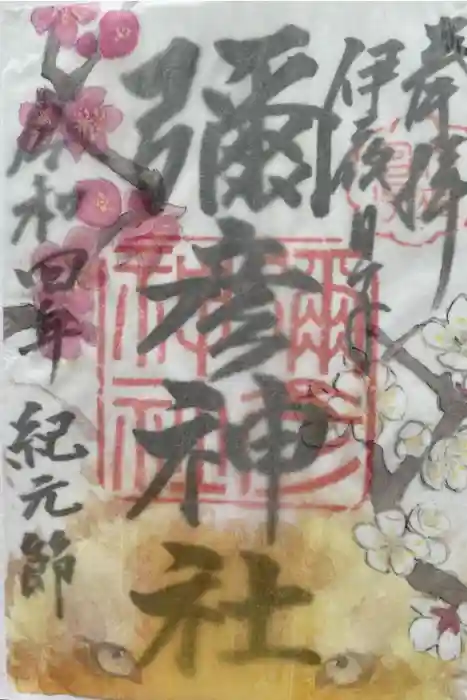 奉拝
伊夜日子
彌彦神社
令和四年 紀元節